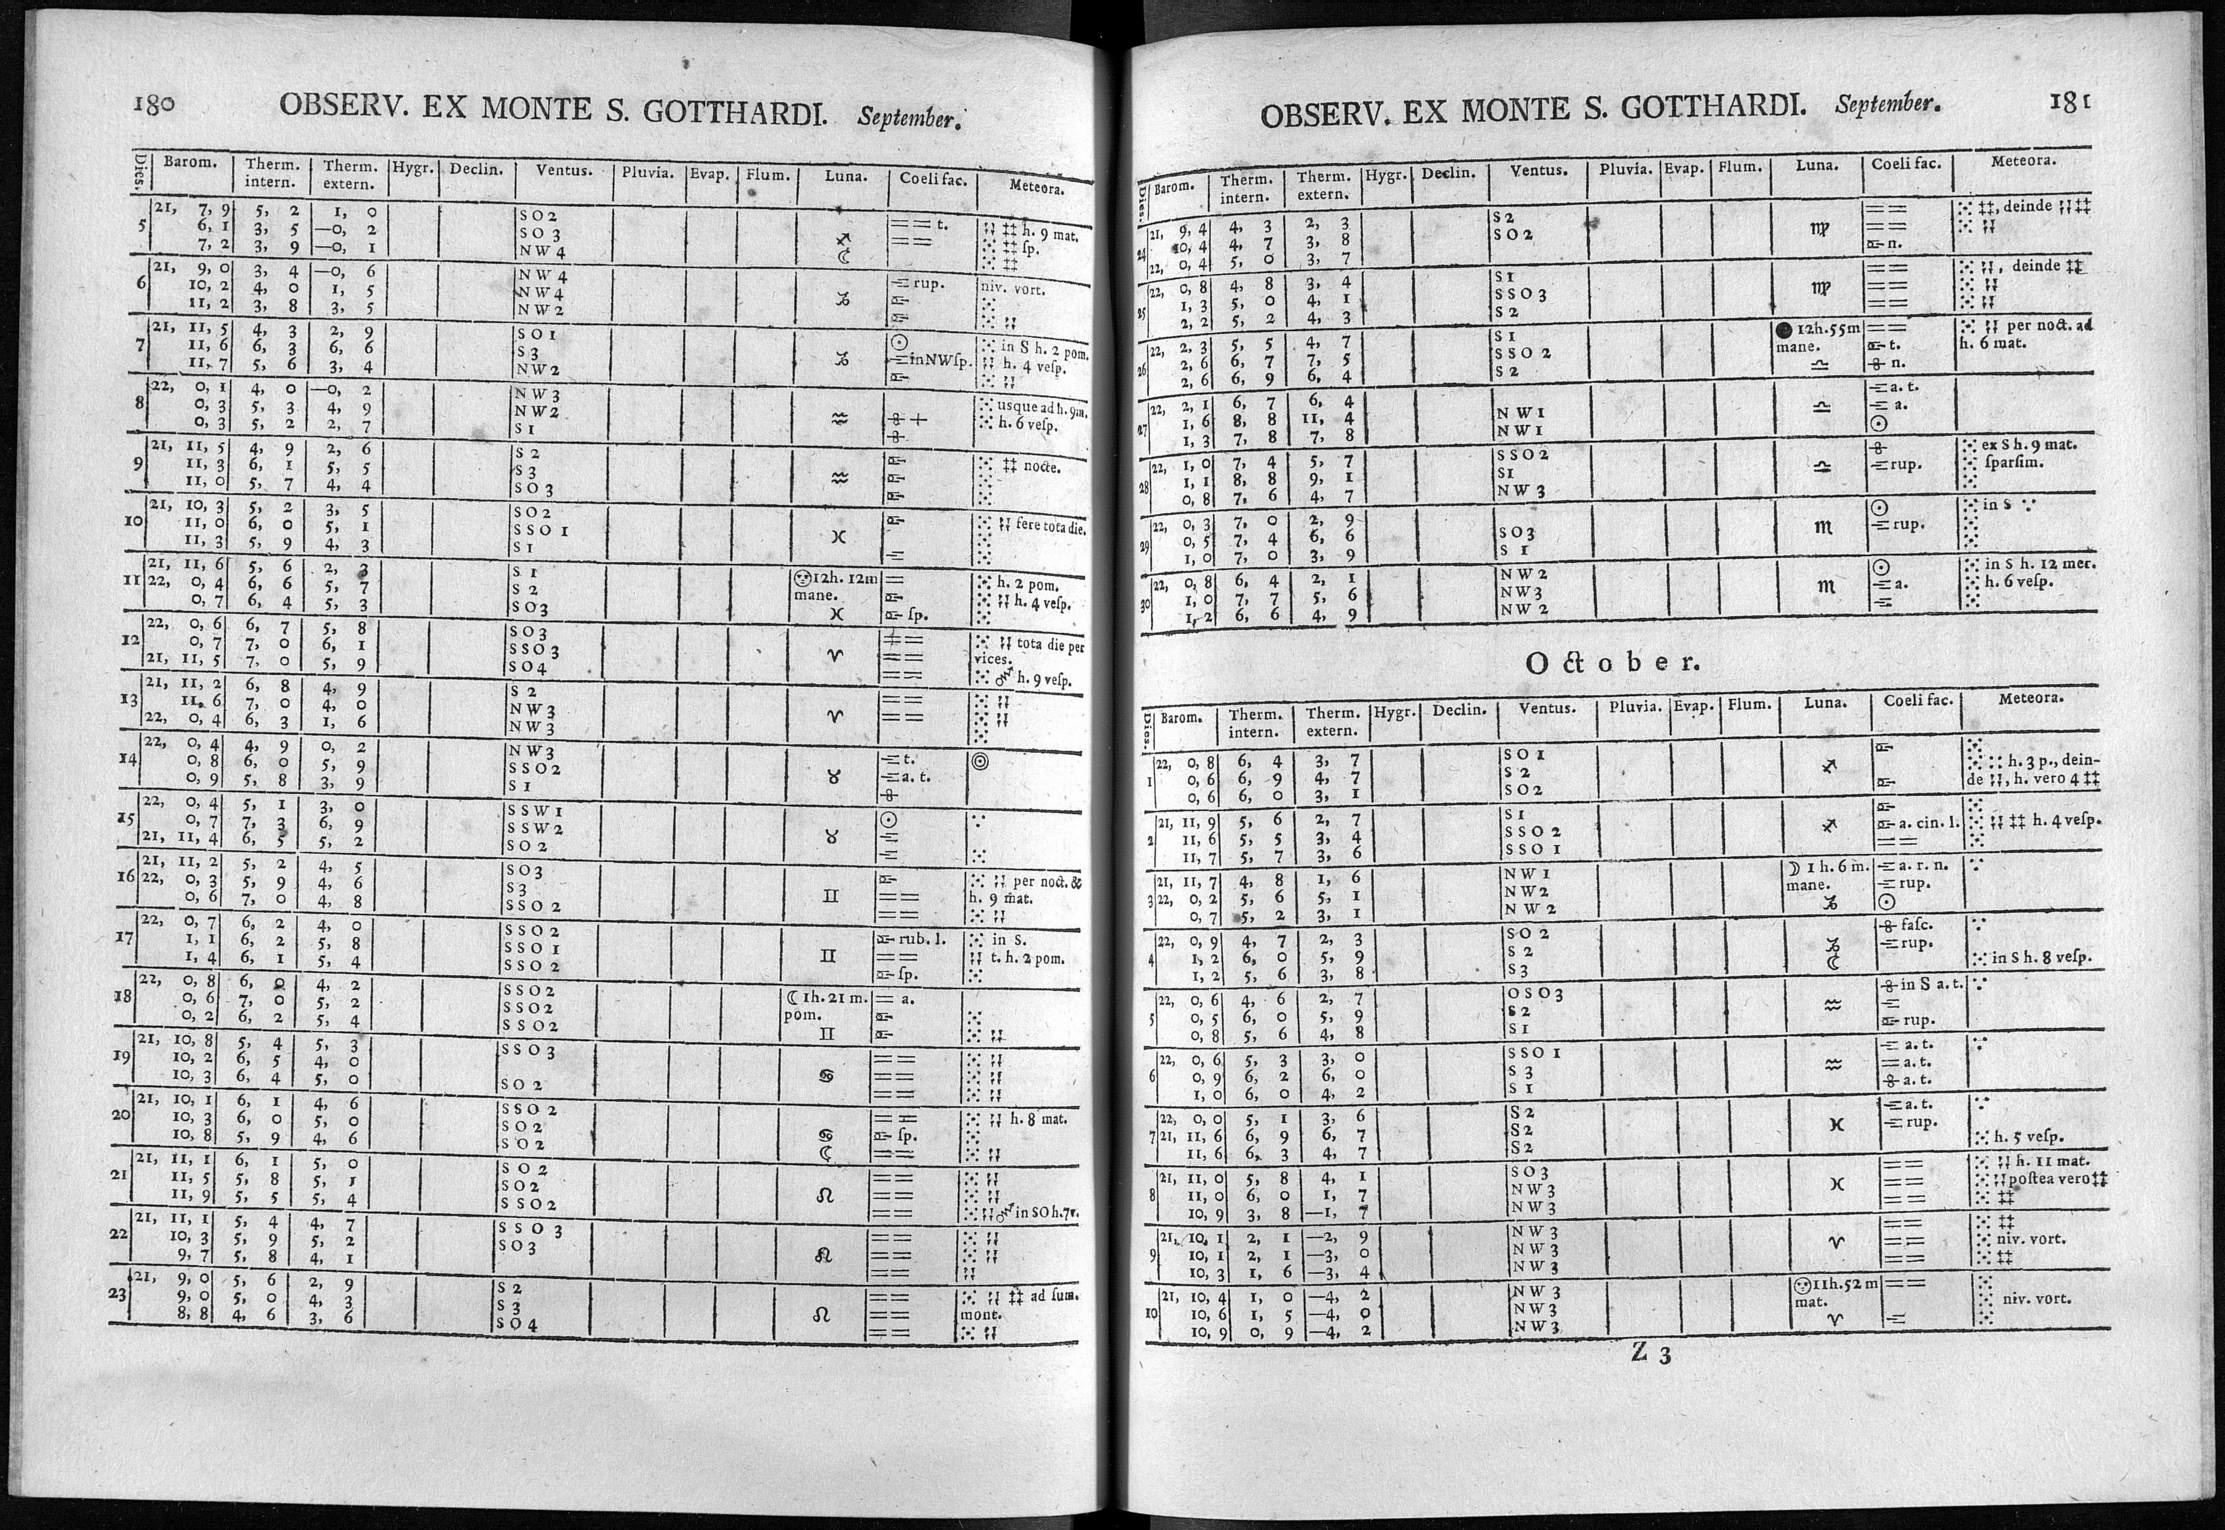 180 OBSERV. EX MONTE S. GOTTHARDI. September.
Dies. Barom. Therm. intern. Therm. extern. Hygr. Declin. Ventus. Pluvia. Evap. Flum. Luna. Coeli fac. Meteora.
5 21, 7, 9 5, 2 1, 0 SO2 == t. ‡‡ h. 9 mat.
6, 1 3, 5 —0, 2 SO3 ♐ == ‡‡ ſp.
7, 2 3, 9 —0, 1 NW4 ☾ ‡‡
6 21, 9, 0 3, 4 —0, 6 NW4 rup. niv. vort.
10, 2 4, 0 1, 5 NW4 ♑
11, 2 3, 8 3, 5 NW2
7 21, 11, 5 4, 3 2, 9 SO1 ☉ in S h. 2 pom.
11, 6 6, 3 6, 6 S3 ♑ inNWſp. h. 4 veſp.
11, 7 5, 6 3, 4 NW2
8 22, 0, 1 4, 0 —0, 2 NW3 usque ad h. 9m.
0, 3 5, 3 4, 9 NW2 ♒ h. 6 veſp.
0, 3 5, 2 2, 7 S1
9 21, 11, 5 4, 9 2, 6 S2 ‡‡ nocte.
11, 3 6, 1 5, 5 S3 ♒
11, 0 5, 7 4, 4 SO3
10 21, 10, 3 5, 2 3, 5 SO2 fere tota die.
11, 0 6, 0 5, 1 SSO1 ♓
11, 3 5, 9 4, 3 S1
11 21, 11, 6 5, 6 2, 3 S1 12h. 12m = h. 2 pom.
22, 0, 4 6, 6 5, 7 S2 mane. h. 4 veſp.
0, 7 6, 4 5, 3 SO3 ♓ ſp.
12 22, 0, 6 6, 7 5, 8 SO3 tota die per
0, 7 7, 0 6, 1 SSO3 ♈ == vices.
21, 11, 5 7, 0 5, 9 SO4 == h. 9 veſp.
13 21, 11, 2 6, 8 4, 9 S2 ==
11, 6 7, 0 4, 0 NW3 ♈ ==
22, 0, 4 6, 3 1, 6 NW3
14 22, 0, 4 4, 9 0, 2 NW3 t. ◎
0, 8 6, 0 5, 9 SSO2 ♉ a. t.
0, 9 5, 8 3, 9 S1
15 22, 0, 4 5, 1 3, 0 SSW1 ☉
0, 7 7, 3 6, 9 SSW2 ♉
21, 11, 4 6, 5 5, 2 SO2
16 21, 11, 2 5, 2 4, 5 SO3 per noct. &
22, 0, 3 5, 9 4, 6 S3 ♊ == h. 9 mat.
0, 6 7, 0 4, 8 SSO2 ==
17 22, 0, 7 6, 2 4, 0 SSO2 rub. l. in S.
1, 1 6, 2 5, 8 SSO1 ♊ == t. h. 2 pom.
1, 4 6, 1 5, 4 SSO2 ſp.
18 22, 0, 8 6, 0 4, 2 SSO2 ☾1h. 21 m. = a.
0, 6 7, 0 5, 2 SSO2 pom.
0, 2 6, 2 5, 4 SSO2 ♊
19 21, 10, 8 5, 4 5, 3 SSO3 ==
10, 2 6, 5 4, 0 ♋ ==
10, 3 6, 4 5, 0 SO2 ==
20 21, 10, 1 6, 1 4, 6 SSO2 == h. 8 mat.
10, 3 6, 0 5, 0 SO2 ♋ ſp.
10, 8 5, 9 4, 6 SO2 ☾ ==
21 21, 11, 1 6, 1 5, 0 SO2 ==
11, 5 5, 8 5, 1 SO2 ♌ ==
11, 9 5, 5 5, 4 SSO2 == in SO h. 7v.
22 21, 11, 1 5, 4 4, 7 SSO3 ==
10, 3 5, 9 5, 2 SO3 ♌ ==
9, 7 5, 8 4, 1 ==
23 21, 9, 0 5, 6 2, 9 S2 == ‡‡ ad ſum.
9, 0 5, 0 4, 3 S3 ♌ == mont.
8, 8 4, 6 3, 6 SO4 ==
OBSERV. EX MONTE S. GOTTHARDI. September. 181
Dies. Barom. Therm. intern. Therm. extern. Hygr. Declin. Ventus. Pluvia. Evap. Flum. Luna. Coeli fac. Meteora.
24 21, 9, 4 4, 3 2, 3 S2 == ‡‡, deinde ‡‡
10, 4 4, 7 3, 8 SO2 ♍ ==
22, 0, 4 5, 0 3, 7 n.
25 22, 0, 8 4, 8 3, 4 S1 == , deinde ‡‡
1, 3 5, 0 4, 1 SSO3 ♍ ==
2, 2 5, 2 4, 3 S2 ==
26 22, 2, 3 5, 5 4, 7 S1 ● 12h. 55m == per noct. ad
2, 6 6, 7 7, 5 SSO2 mane. t. h. 6 mat.
2, 6 6, 9 6, 4 S2 ♎ n.
27 22, 2, 1 6, 7 6, 4 a. t.
1, 6 8, 8 11, 4 NW1 ♎ a.
1, 3 7, 8 7, 8 NW1 ☉
28 22, 1, 0 7, 4 5, 7 SSO2 ex S h. 9 mat.
1, 1 8, 8 9, 1 S1 ♎ rup. ſparſim.
0, 8 7, 6 4, 7 NW3
29 22, 0, 3 7, 0 2, 9 ☉ in S
0, 5 7, 4 6, 6 SO3 ♏ rup.
1, 0 7, 0 3, 9 S1
30 22, 0, 8 6, 4 2, 1 NW2 ☉ in S h. 12 mer.
1, 0 7, 7 5, 6 NW3 ♏ a. h. 6 veſp.
1, 2 6, 6 4, 9 NW2
October.
Dies. Barom. Therm. intern. Therm. extern. Hygr. Declin. Ventus. Pluvia. Evap. Flum. Luna. Coeli fac. Meteora.
1 22, 0, 8 6, 4 3, 7 SO1
0, 6 6, 9 4, 7 S2 ♐ h. 3 p., dein-
0, 6 6, 0 3, 1 SO2 de , h. vero 4 ‡‡
2 21, 11, 9 5, 6 2, 7 S1
11, 6 5, 5 3, 4 SSO2 ♐ a. cin. l. ‡‡ h. 4 veſp.
11, 7 5, 7 3, 6 SSO1 ==
3 21, 11, 7 4, 8 1, 6 NW1 ☽ 1 h. 6 m. a. r. n.
22, 0, 2 5, 6 5, 1 NW2 mane. rup.
0, 7 5, 2 3, 1 NW2 ♑ ☉
4 22, 0, 9 4, 7 2, 3 SO2 faſc.
1, 2 6, 0 5, 9 S2 ♑ rup.
1, 2 5, 6 3, 8 S3 ☾ in S h. 8 veſp.
5 22, 0, 6 4, 6 2, 7 OSO3 in S a. t.
0, 5 6, 0 5, 9 S2 ♒
0, 8 5, 6 4, 8 S1 rup.
6 22, 0, 6 5, 3 3, 0 SSO1 a. t.
0, 9 6, 2 6, 0 S3 ♒ = a. t.
1, 0 6, 0 4, 2 S1 a. t.
7 22, 0, 0 5, 1 3, 6 S2 a. t.
21, 11, 6 6, 9 6, 7 S2 ♓ rup.
11, 6 6, 3 4, 7 S2 h. 5 veſp.
8 21, 11, 0 5, 8 4, 1 SO3 == h. 11 mat.
11, 0 6, 0 1, 7 NW3 ♓ == poſtea vero ‡‡
10, 9 3, 8 —1, 7 NW3 == ‡‡
9 21, 10, 1 2, 1 —2, 9 NW3 == ‡‡
10, 1 2, 1 —3, 0 NW3 ♈ == niv. vort.
10, 3 1, 6 —3, 4 NW3 == ‡‡
10 21, 10, 4 1, 0 —4, 2 NW3 11h. 52 m ==
10, 6 1, 5 —4, 0 NW3 mat. niv. vort.
10, 9 0, 9 —4, 2 NW3 ♈
Z 3